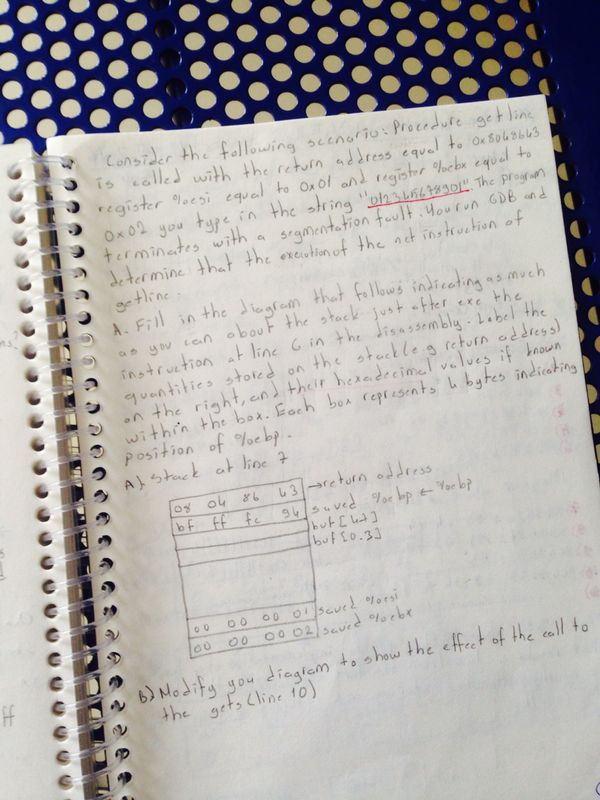 Consider the following scenario: Procedure getline
is called with the return address equal to 0x8048643
register %esi equal to 0x01 and register %ebx equal to
0x02 you type in the string "012345678901". The program
terminates with a segmentation fault. You run GDB and
determine that the execution of the net instruction of
getline.
A. Fill in the diagram that follows indicating as much
as you can about the stack just after exe the
instruction at line 6 in the disassembly. Label the
quantities stored on the stack (e.g return address)
on the right, and their hexadecimal values if known
within the box. Each box represents 4 bytes indicating
position of %ebp.
A) Stack at line 7
08 04 86 43 →return address
bf ff fc 94 saved %ebp ← %ebp
buf[4.7]
buf[0.3]
00 00 00 01 saved %esi
00 00 00 02 saved %ebx
B) Modify you diagram to show the effect of the call to
the gets (line 10)
ff